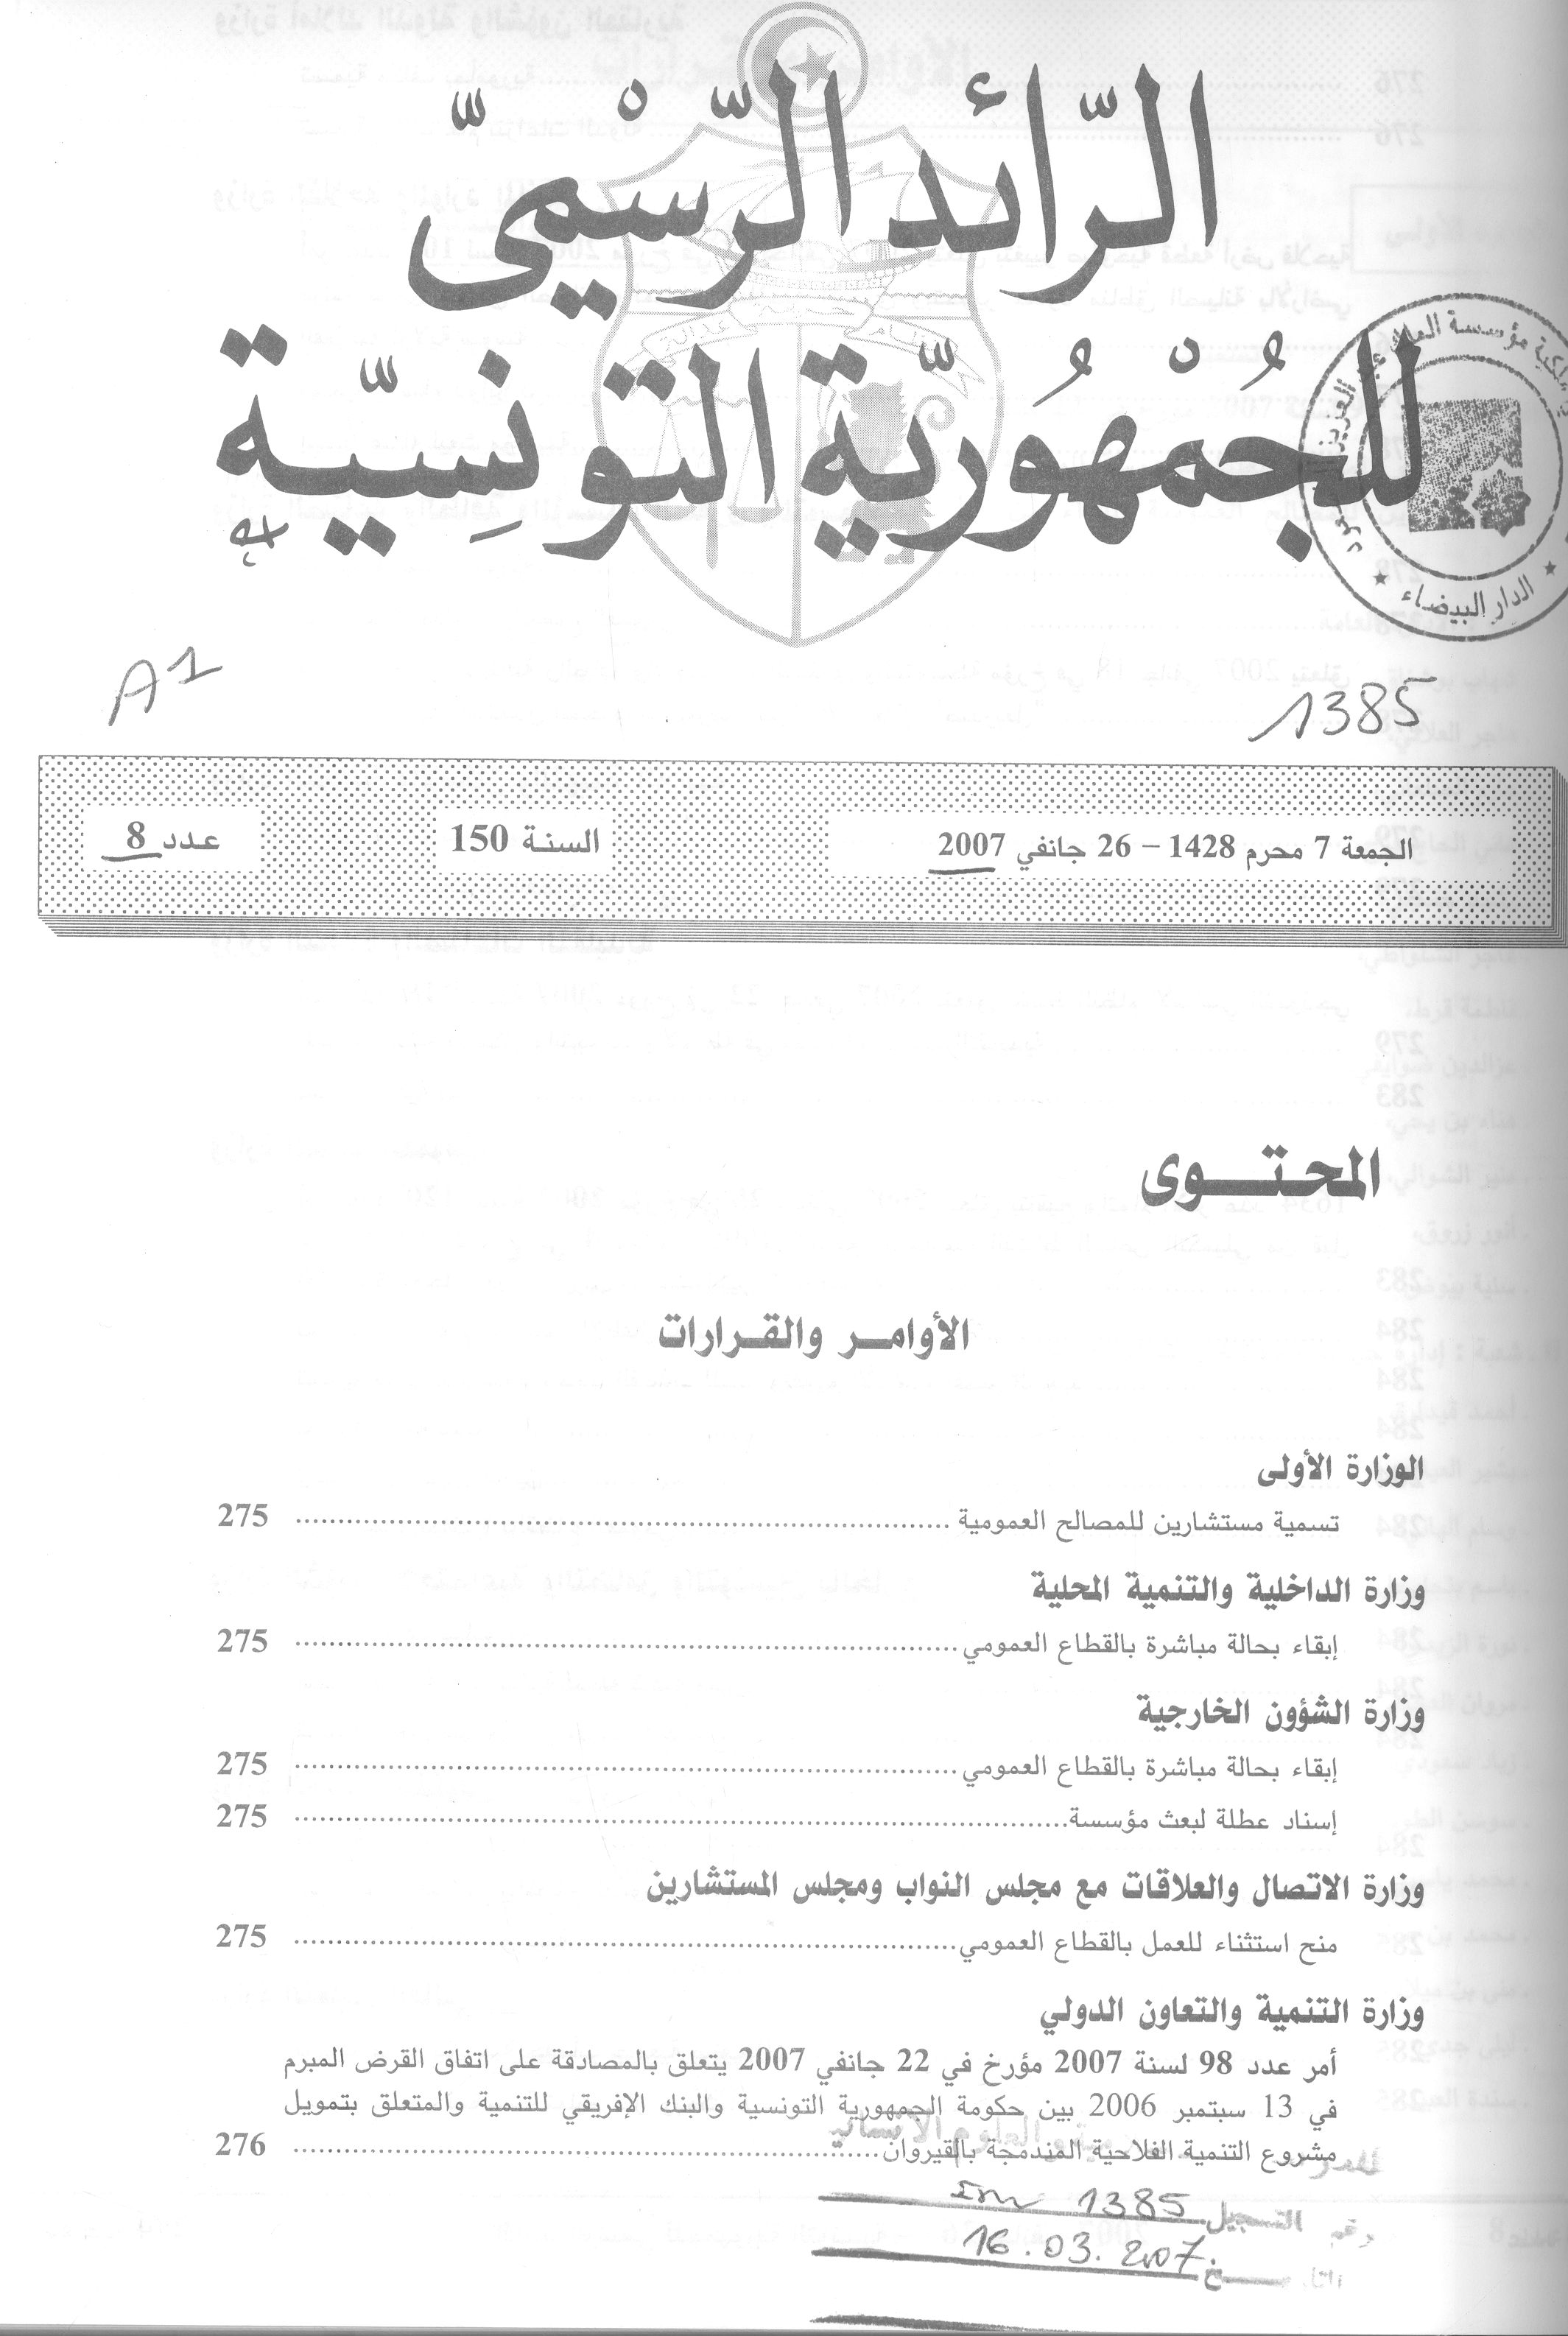 الرّائد الرّسميّ
للجُمْهُوريّة التونسِيّة
نظام حرية عدالة
مؤسسة الملك عبد العزيز
الدار البيضاء
A1
1385
الجمعة 7 محرم 1428 – 26 جانفي 2007
السنة 150
عدد 8
المحتوى
الأوامر والقرارات
الوزارة الأولى
تسمية مستشارين للمصالح العمومية 275
وزارة الداخلية والتنمية المحلية
إبقاء بحالة مباشرة بالقطاع العمومي 275
وزارة الشؤون الخارجية
إبقاء بحالة مباشرة بالقطاع العمومي 275
إسناد عطلة لبعث مؤسسة 275
وزارة الاتصال والعلاقات مع مجلس النواب ومجلس المستشارين
منح استثناء للعمل بالقطاع العمومي 275
وزارة التنمية والتعاون الدولي
أمر عدد 98 لسنة 2007 مؤرخ في 22 جانفي 2007 يتعلق بالمصادقة على اتفاق القرض المبرم
في 13 سبتمبر 2006 بين حكومة الجمهورية التونسية والبنك الإفريقي للتنمية والمتعلق بتمويل
مشروع التنمية الفلاحية المندمجة بالقيروان 276
رقم التسجيل 1385
16.03.2007